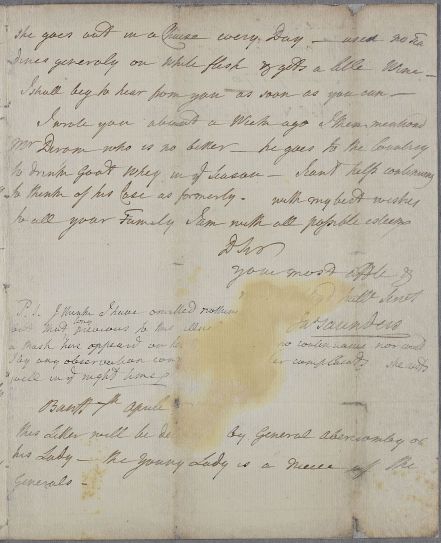 she goes out in a Chaise every Day – used no Tea
dines generaly on white flesh & gets a little Wine –
I shall beg to hear from you as soon as you can –
I wrote you about a Week ago I then mentiond
Mr who is no better – he goes to the Country
to drink Goat Whey in ye Season – I cant help continuing
to think of his Case as formerly. with my best wishes
to all your Family I am with all possible esteem
D Sir
your most &
Servt
Saunders
P.S. I think I have omitted nothing
but that previous to this
a rash here appeard on no continuance nor could
I by any observation She rests
well in ye night time
Banff April
this Letter will be by General Abercromby or
his Lady – the Young Lady is a Niece of the
Generals –